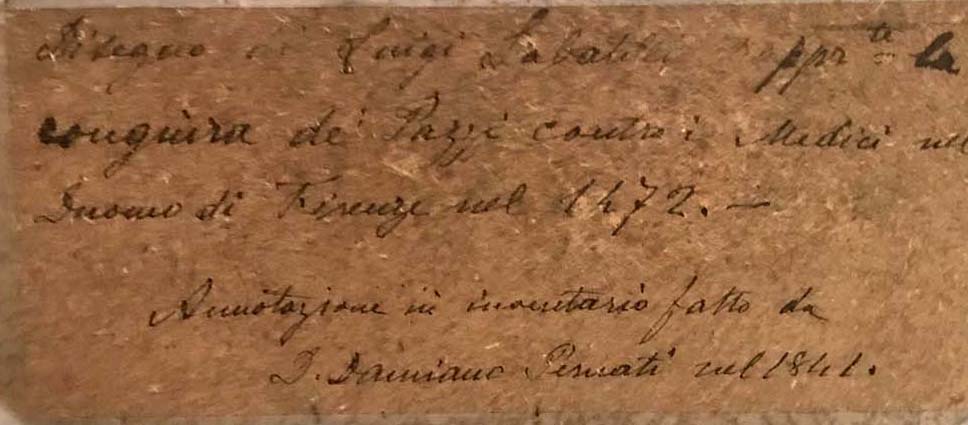 Disegno di Luigi Sabatelli rappr.te la
congiura de' Pazzi contro i Medici nel
Duomo di Firenze nel 1472. —
Annotazione in inventario fatto da
D. Damiano Pernati nel 1841.